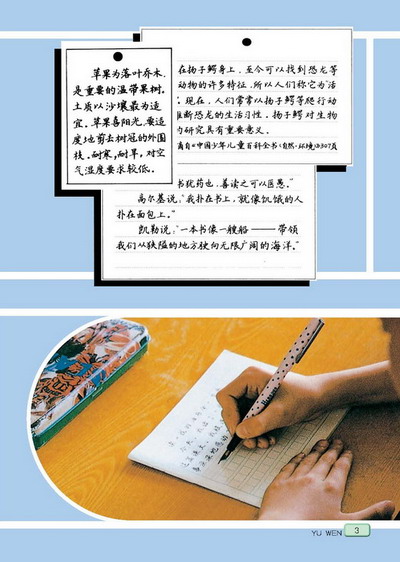 苹果为落叶乔木,
是重要的温带果树。
土质以沙壤最为适
宜。苹果喜阳光,要适
度地剪去树冠的外围
枝。耐寒,耐旱,对空
气湿度要求较低。
在扬子鳄身上,至今可以找到恐龙等
动物的许多特征,所以人们称它为“活
。现在,人们常常以扬子鳄等爬行动
推断恐龙的生活习性。扬子鳄对生物
的研究具有重要意义。
摘自《中国少年儿童百科全书(自然·环境)》307页
书犹药也,善读之可以医愚。”
高尔基说:“我扑在书上,就像饥饿的人
扑在面包上。”
凯勒说:“一本书像一艘船——带领
我们从狭隘的地方驶向无限广阔的海洋。”
YU WEN 3